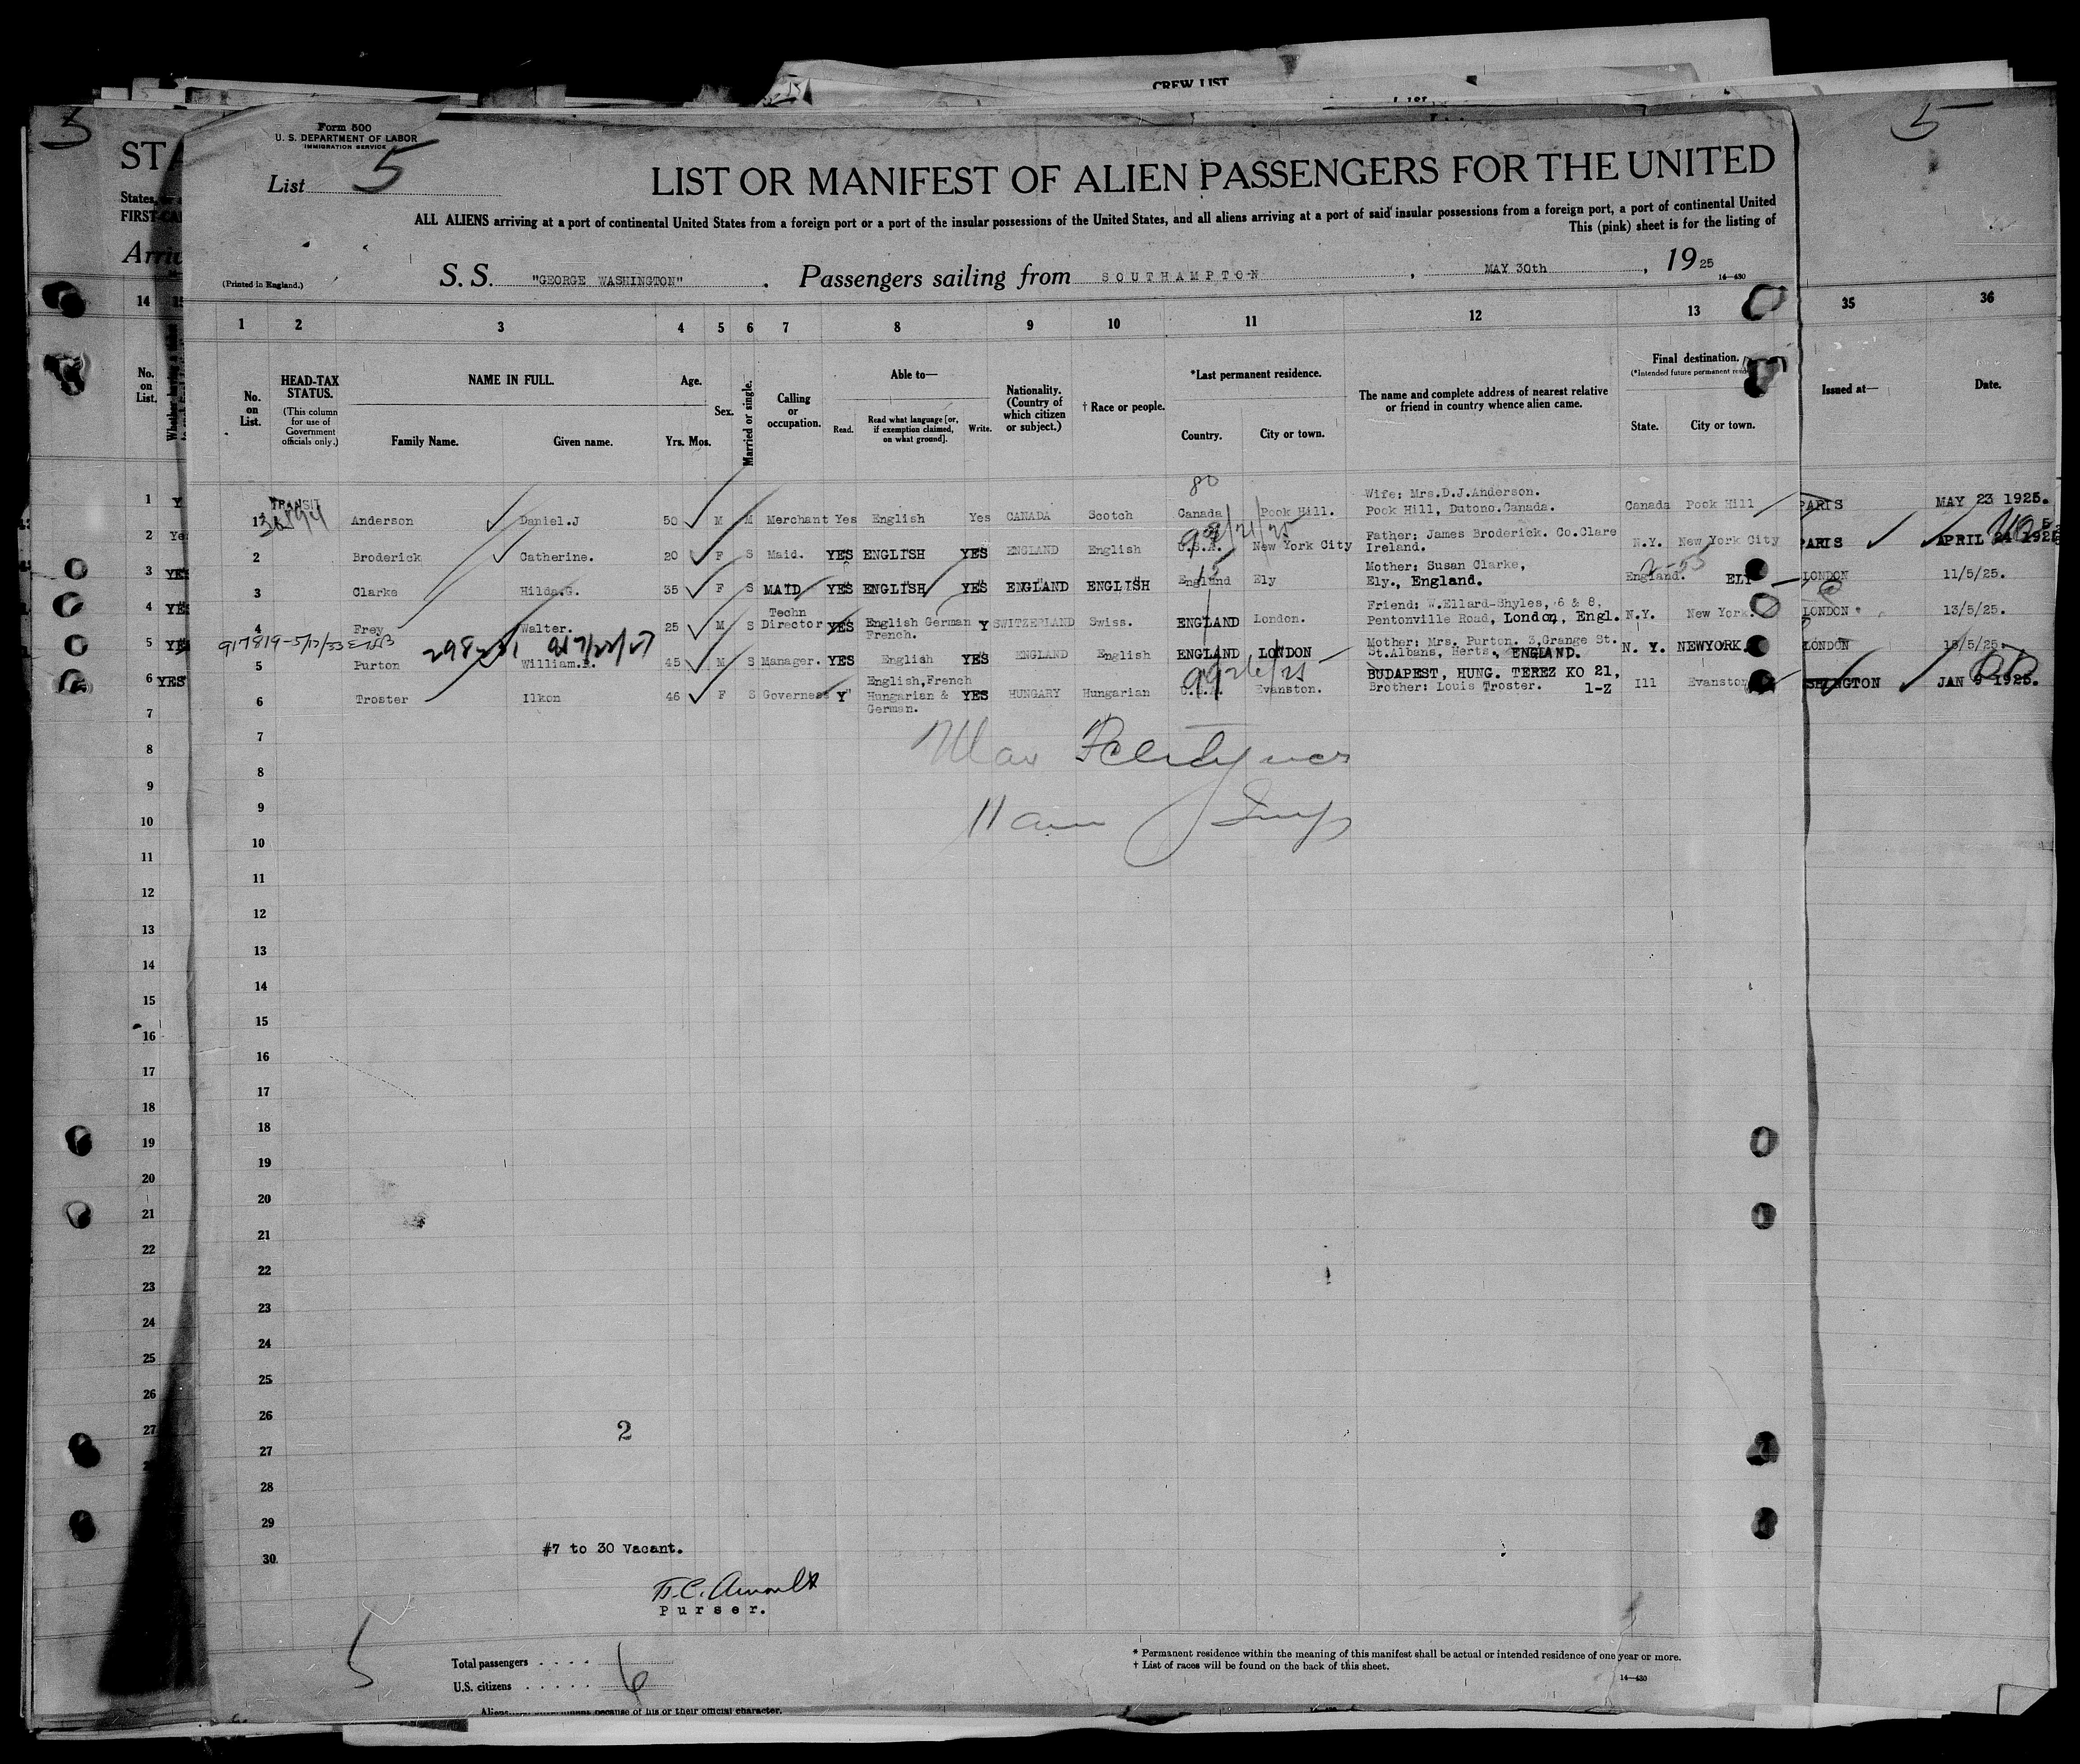 CREW LIST
5
5
Form 500
U. S. DEPARTMENT OF LABOR
IMMIGRATION SERVICE
List 5
LIST OR MANIFEST OF ALIEN PASSENGERS FOR THE UNITED
ST
States,
ALL ALIENS arriving at a port of continental United States from a foreign port or a port of the insular possessions of the United States, and all aliens arriving at a port of said insular possessions from a foreign port, a port of continental United
FIRST-CA
This (pink) sheet is for the listing of
Arri
(Printed in England.)
S. S. "GEORGE WASHINGTON" . Passengers sailing from SOUTHAMPTON , MAY 30th , 1925
14—430
14 1 2 3 4 5 6 7 8 9 10 11 12 13 35 36
No. on List.
Whether having a ticket
No. on List.
HEAD-TAX STATUS.
(This column for use of Government officials only.)
NAME IN FULL.
Family Name.
Given name.
Age.
Yrs. Mos.
Sex.
Married or single.
Calling or occupation.
Able to—
Read.
Read what language [or, if exemption claimed, on what ground].
Write.
Nationality. (Country of which citizen or subject.)
† Race or people.
*Last permanent residence.
Country.
City or town.
The name and complete address of nearest relative or friend in country whence alien came.
Final destination.
(*Intended future permanent
State.
City or town.
Issued at—
Date.
80
TRANSIT
Wife: Mrs.D.J.Anderson.
1 Anderson Daniel.J 50 M M Merchant Yes English Yes CANADA Scotch Canada Pook Hill. Pook Hill, Dutono.Canada. Canada Pook Hill PARIS MAY 23 1925.
Father: James Broderick. Co.Clare
2 Broderick Catherine. 20 F S Maid. YES ENGLISH YES ENGLAND English U.S.A. New York City Ireland. N.Y. New York City PARIS APRIL
Mother: Susan Clarke,
3 Clarke Hilda.G. 35 F S MAID YES ENGLISH YES ENGLAND ENGLISH England Ely Ely., England. England. ELY LONDON 11/5/25.
Techn
Friend: W.Ellard-Shyles, 6 & 8,
4 Frey Walter. 25 M S Director YES English German French. Y SWITZERLAND Swiss. ENGLAND London. Pentonville Road, London, Engl. N.Y. New York. LONDON 13/5/25.
Mother: Mrs. Purton. 3.Grange St.
5 Purton William. 45 M S Manager. YES English YES ENGLAND English ENGLAND LONDON St.Albans, Herts., ENGLAND. N. Y. NEWYORK. LONDON 15/5/25.
English,French
BUDAPEST, HUNG. TEREZ KO 21,
6 Troster Ilkon 46 F S Governess Y Hungarian & German. YES HUNGARY Hungarian Evanston. Brother: Louis Troster. 1-Z Ill Evanston SHINGTON JAN 9 1925.
7
8
9
10
11
12
13
14
15
16
17
18
19
20
21
22
23
24
25
26
2
27
28
29
#7 to 30 Vacant.
30
Purser.
5
Total passengers . . . .
6
U.S. citizens . . . . .
* Permanent residence within the meaning of this manifest shall be actual or intended residence of one year or more.
† List of races will be found on the back of this sheet.
14—430
because of his or their official character.